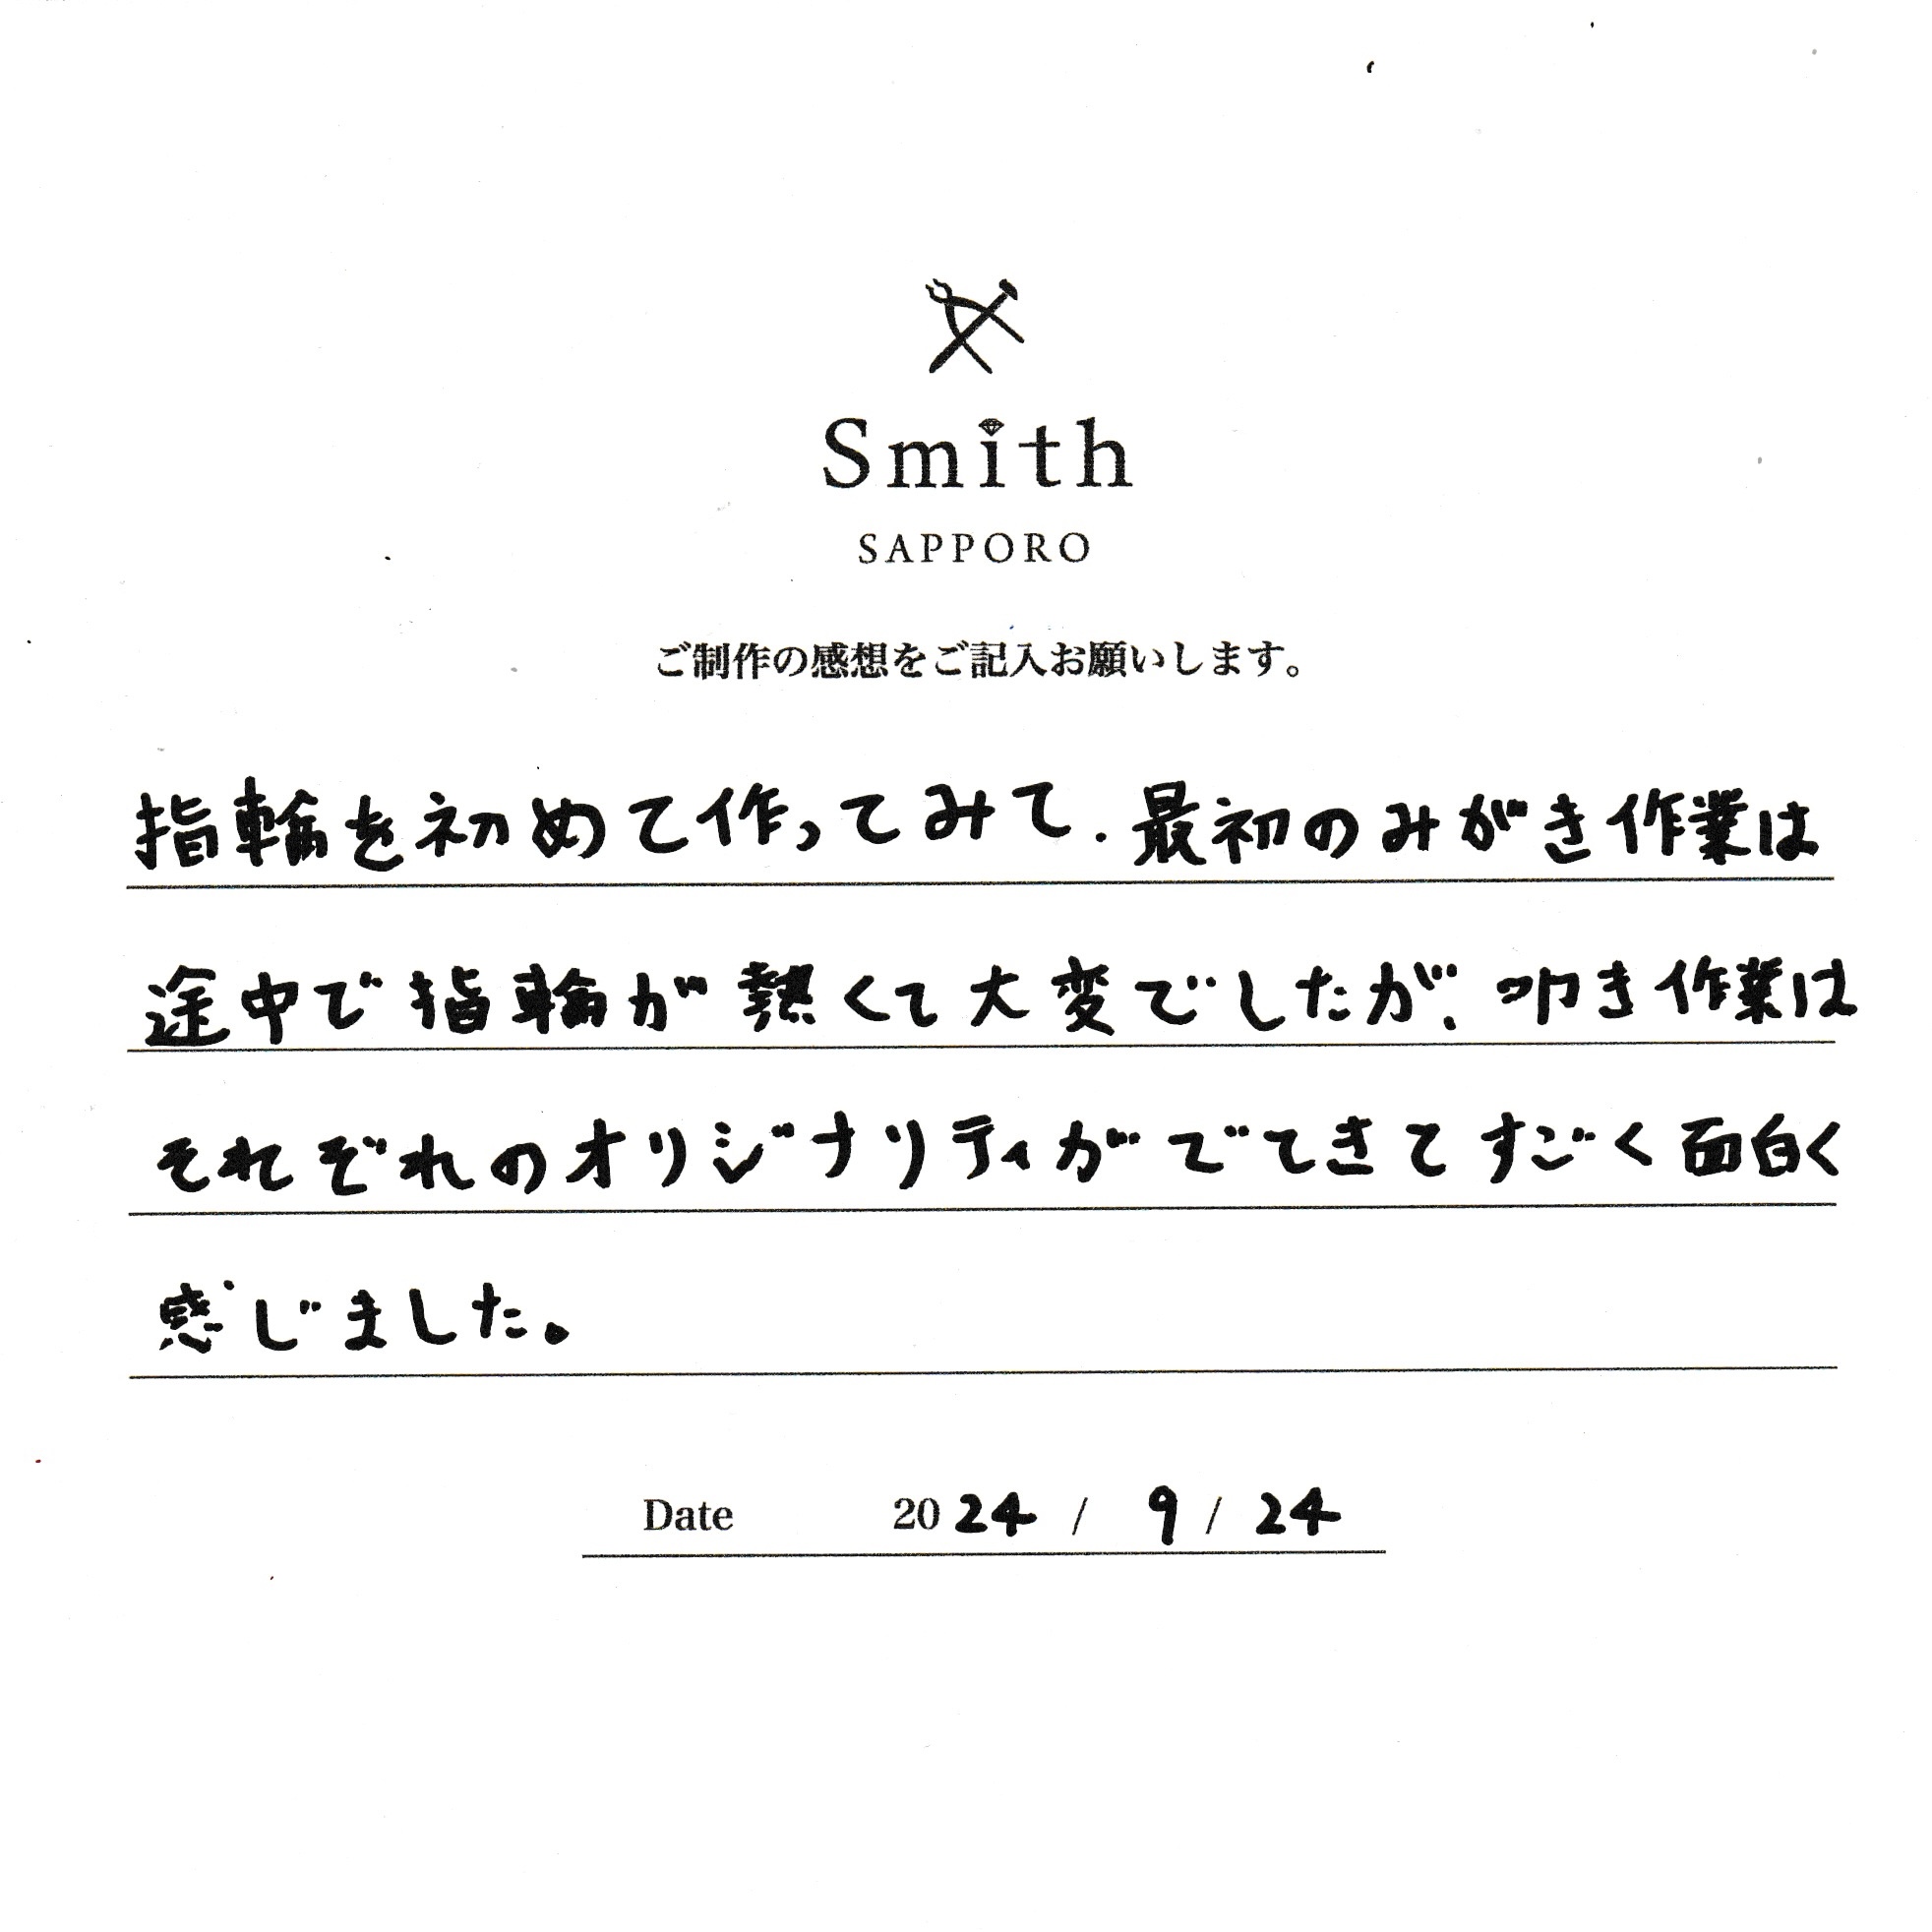 Smith
SAPPORO
ご制作の感想をご記入お願いします。
指輪を初めて作ってみて.最初のみがき作業は
途中で指輪が熱くて大変でしたが、叩き作業は
それぞれのオリジナリティがでてきてすごく面白く
感じました。
Date 2024 / 9 / 24